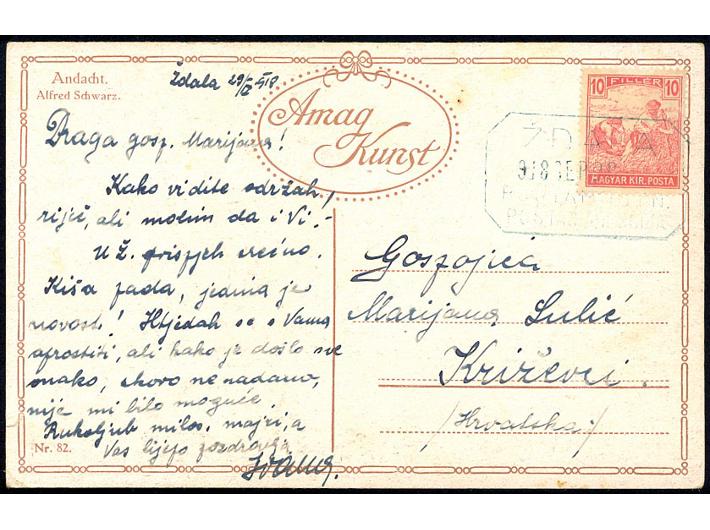 Andacht.
Alfred Schwarz.
Ždala 29/ 918
Amag
Kunst
10 FILLER 10
MAGYAR KIR. POSTA
ŽDALA
918 SEP
Draga gosp. Marijana!
Kako vidite održah
riječ, ali molim da i Vi.-
U Ž. prispjeh srećno.
Kiša pada, jedina je
novost! Htjedah se s Vama
oprostiti, ali kako je došlo sve
onako, skoro ne nadano,
nije mi bilo moguće.
Rukoljub milos. majci, a
Vas lijepo pozdravlja
Ivana.
Gospojica
Marijana Sulić
Križevci.
/Hrvatska/
Nr. 82.